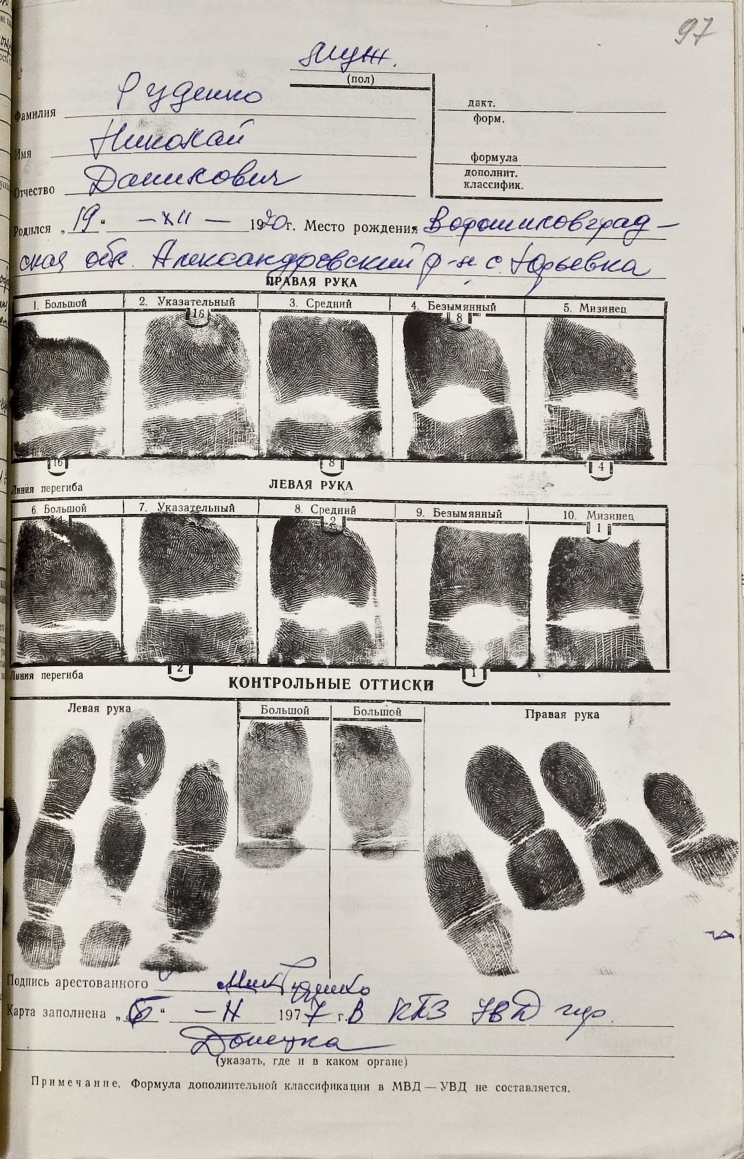 97
муж.
(пол)
Фамилия Руденко
Имя Николай
Отчество Данилович
дакт.
форм.
формула
дополнит.
классифик.
Родился „19“ —XII— 1920г. Место рождения Ворошиловград-
ская обл. Александровский р-н с. Юрьевка
ПРАВАЯ РУКА
1. Большой 2. Указательный 3. Средний 4. Безымянный 5. Мизинец
16 8
16 8 4
Линия перегиба ЛЕВАЯ РУКА
6. Большой 7. Указательный 8. Средний 9. Безымянный 10. Мизинец
2 1
2 1
Линия перегиба
КОНТРОЛЬНЫЕ ОТТИСКИ
Левая рука Большой Большой Правая рука
Подпись арестованного
Карта заполнена „ “ 1977 г. В КПЗ УВД гор.
Донецка
(указать, где и в каком органе)
Примечание. Формула дополнительной классификации в МВД — УВД не составляется.